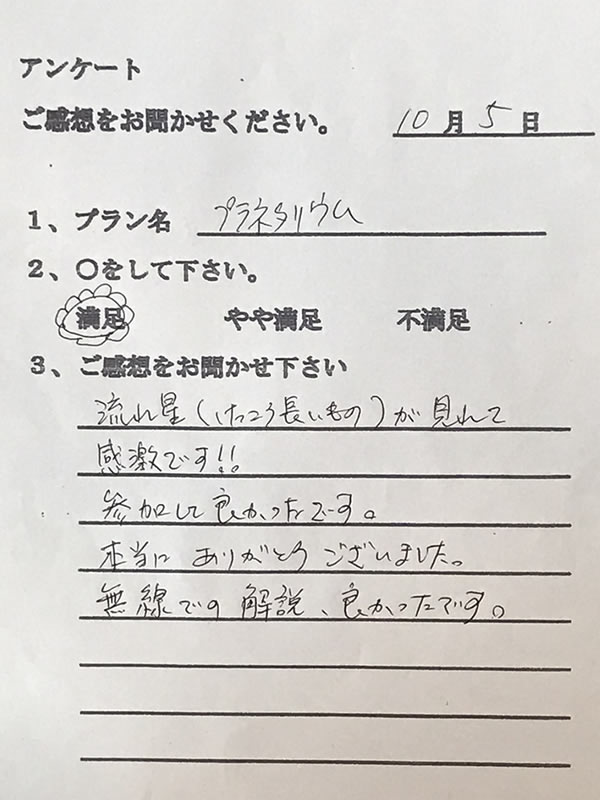 アンケート
ご感想をお聞かせください。 10月5日
1、プラン名 プラネタリウム
2、○をして下さい。
満足 やや満足 不満足
3、ご感想をお聞かせ下さい
流れ星(けっこう長いもの)が見れて
感激です!!
参加して良かったです。
本当に ありがとう ございました。
無線での 解説、良かったです。